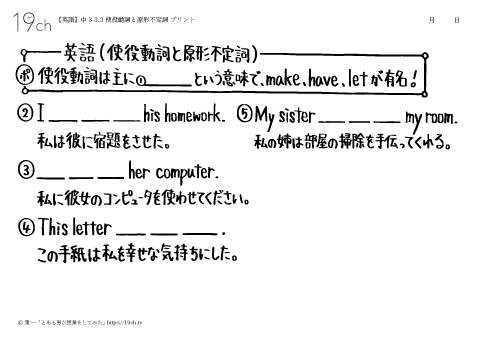 19ch 【英語】中3-3.3 使役動詞と原形不定詞 プリント 月 日
英語(使役動詞と原形不定詞)
ポ 使役動詞は主に①______という意味で、make、have、letが有名!
② I ___ ___ ___ his homework.
私は彼に宿題をさせた。
③ ___ ___ ___ her computer.
私に彼女のコンピュータを使わせてください。
④ This letter ___ ___ ___ .
この手紙は私を幸せな気持ちにした。
⑤ My sister ___ ___ ___ my room.
私の姉は部屋の掃除を手伝ってくれる。
© 葉一「とある男が授業をしてみた」https://19ch.tv